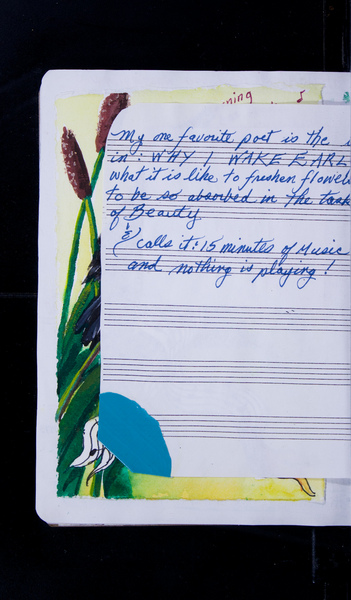 ning
My one favorite poet is the
in: WHY I WAKE EARL
what it is like to freshen flowe
to be so absorbed in the task
of Beauty
& calls it: 15 minutes of Music
and nothing is playing!